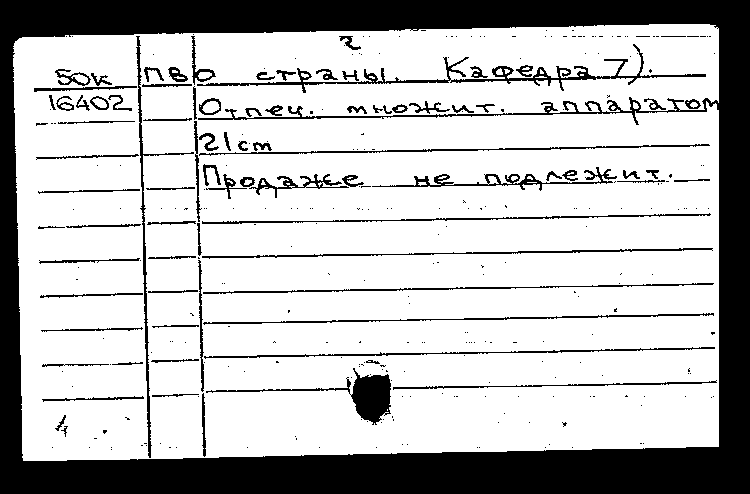 2
50к ПВО страны. Кафедра 7).
16402 Отпеч. множит. аппаратом
21 cm
Продаже не подлежит.
4